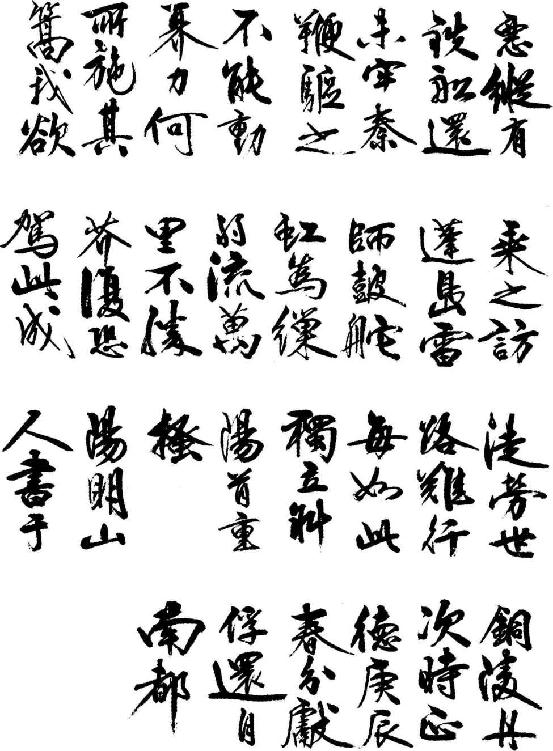 惡縱有
鐵船還
未牢秦
鞭驅之
不能動
奡力何
所施其
篙我欲
乘之訪
蓬島雷
師鼓舵
虹為繅
弱流萬
里不勝
芥復恐
駕此成
徒勞世
路難行
每如此
獨立斜
陽首重
搔
陽明山
人書于
銅陵舟
次時正
德庚辰
春分獻
俘還自
南都